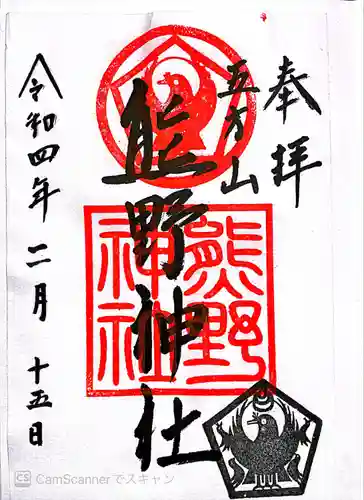 奉拝
五方山
熊野神社
熊野
神社
令和四年二月十五日
CS CamScannerでスキャン